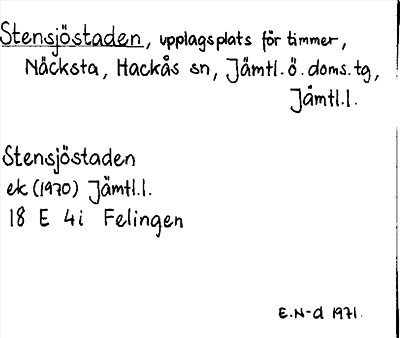 Stensjöstaden, upplagsplats för timmer,
Näcksta, Hackås sn, Jämtl.ö.doms.tg,
Jämtl.l.
Stensjöstaden
ek (1970) Jämtl.l.
18 E 4i Felingen
E.N-d 1971.